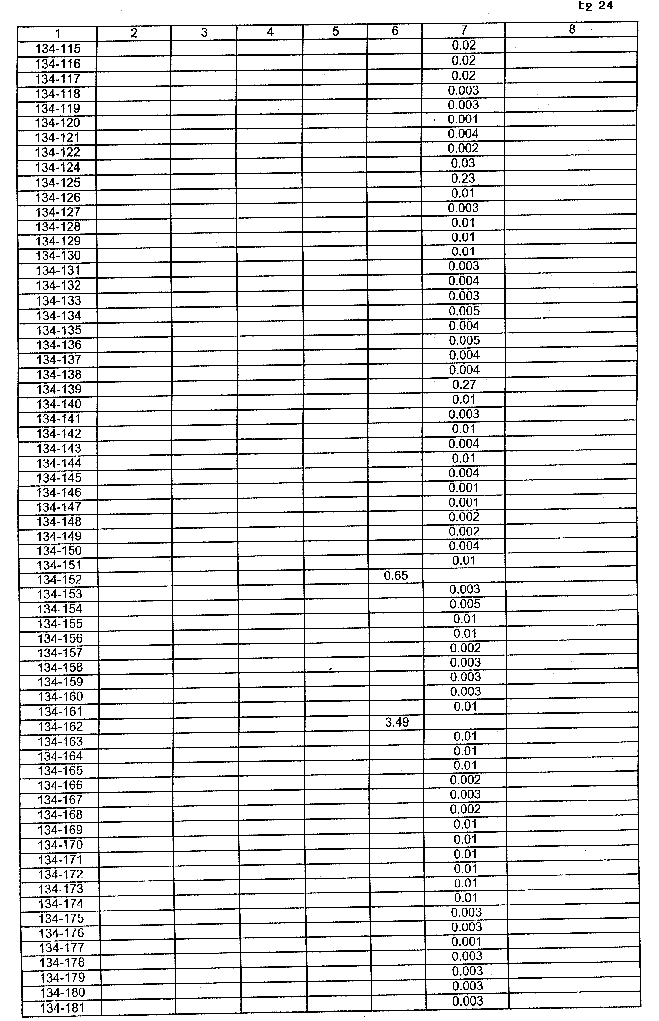 tg 24
1 2 3 4 5 6 7 8
134-115 0.02
134-116 0.02
134-117 0.02
134-118 0.003
134-119 0.003
134-120 0.001
134-121 0.004
134-122 0.002
134-124 0.03
134-125 0.23
134-126 0.01
134-127 0.003
134-128 0.01
134-129 0.01
134-130 0.01
134-131 0.003
134-132 0.004
134-133 0.003
134-134 0.005
134-135 0.004
134-136 0.005
134-137 0.004
134-138 0.004
134-139 0.27
134-140 0.01
134-141 0.003
134-142 0.01
134-143 0.004
134-144 0.01
134-145 0.004
134-146 0.001
134-147 0.001
134-148 0.002
134-149 0.002
134-150 0.004
134-151 0.01
134-152 0.65
134-153 0.003
134-154 0.005
134-155 0.01
134-156 0.01
134-157 0.002
134-158 0.003
134-159 0.003
134-160 0.003
134-161 0.01
134-162 3.49
134-163 0.01
134-164 0.01
134-165 0.01
134-166 0.002
134-167 0.003
134-168 0.002
134-169 0.01
134-170 0.01
134-171 0.01
134-172 0.01
134-173 0.01
134-174 0.01
134-175 0.003
134-176 0.003
134-177 0.001
134-178 0.003
134-179 0.003
134-180 0.003
134-181 0.003